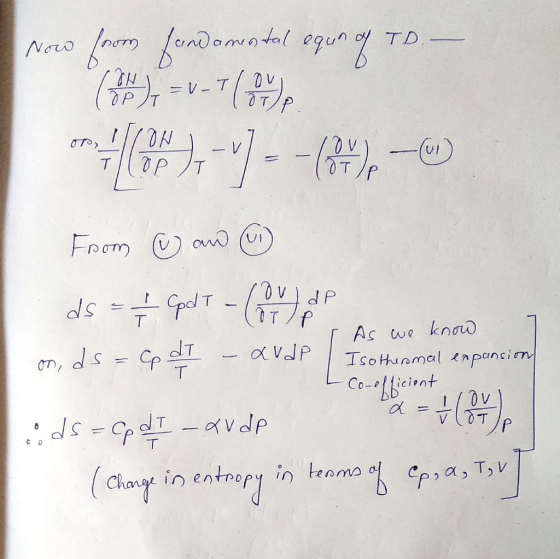 Now from fundamental equn of TD. —
(∂H/∂P)_T = V - T(∂V/∂T)_P
or, 1/T[(∂H/∂P)_T - V] = -(∂V/∂T)_P — (VI)
From (V) and (VI)
ds = 1/T CpdT - (∂V/∂T)_P dP
or, ds = Cp dT/T - αVdP
[As we know
Isothermal expansion
Co-efficient
α = 1/V (∂V/∂T)_P]
∴ ds = Cp dT/T - αVdP
(Change in entropy in terms of Cp, α, T, V]